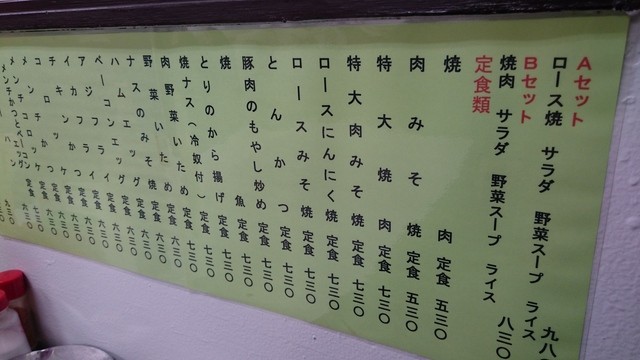 Aセット
ロース焼 サラダ 野菜スープ ライス 九八
Bセット
焼肉 サラダ 野菜スープ ライス 八三〇
定食類
焼肉定食 五三〇
肉みそ焼定食 五三〇
特大焼肉定食 七三〇
特大肉みそ焼定食 七三〇
ロースにんにく焼定食 七三〇
ロースみそ焼定食 七三〇
とんかつ定食 七三〇
豚肉のもやし炒め定食 七三〇
焼魚定食 七三〇
とりのから揚げ定食 七三〇
焼ナス(冷奴付)定食 七三〇
肉野菜いため定食 六三〇
野菜のみそ焼定食 六三〇
ナス
ハムエッグ定食 六三〇
ベーコンエッグ定食 六三〇
アジフライ定食 六三〇
イカフライ定食
チキンカツ定食
コロッケ定食
メンチカツ